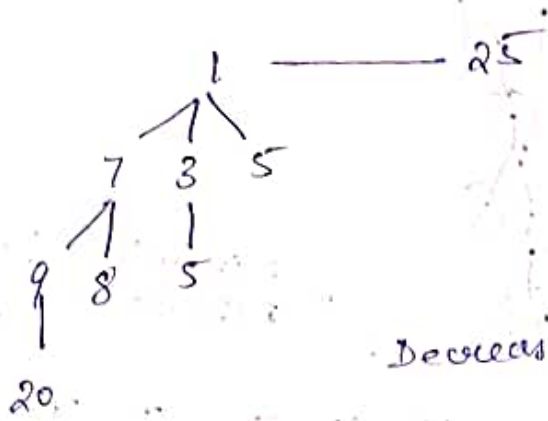 1 25
7 3 5
9 8 5
Decreas
20